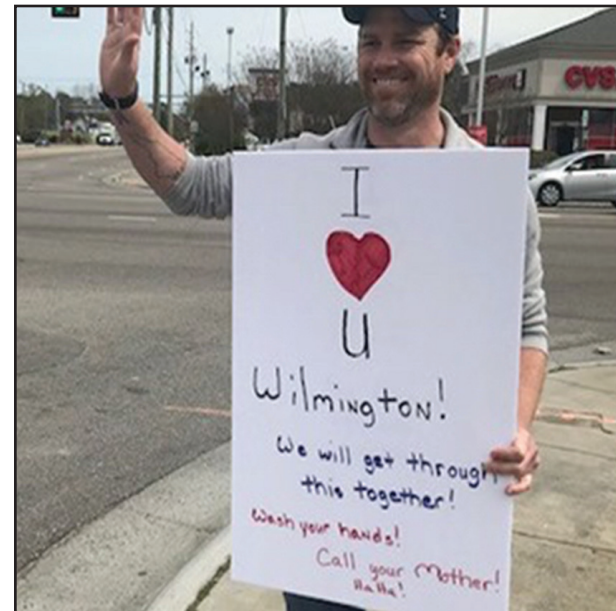 CVS
I
U
Wilmington!
We will get through
this together!
Wash your hands!
Call your Mother!
HaHa!